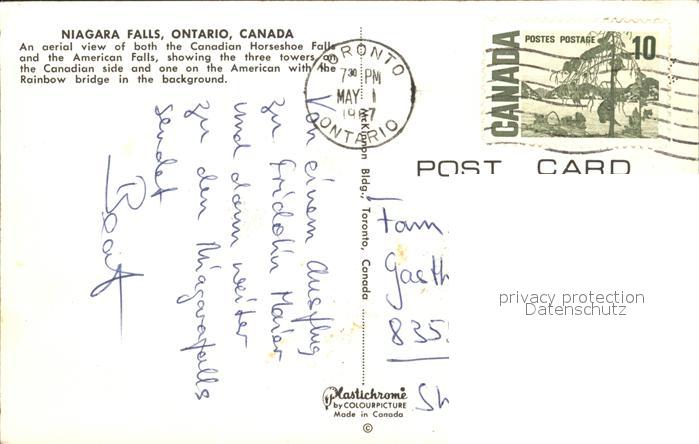 NIAGARA FALLS, ONTARIO, CANADA
An aerial view of both the Canadian Horseshoe Falls
and the American Falls, showing the three towers on
the Canadian side and one on the American with the
Rainbow bridge in the background.
TORONTO
7 30 PM
MAY 1
ONTARIO
POSTES POSTAGE 10
CANADA
POST CARD
Von einem Ausflug
zu Fridolin Maier
und dann weiter
zu den Niagarafalls
sendet
McKinnon Bldg., Toronto, Canada
Fam
Gasth
835
privacy protection
Datenschutz
Plastichrome
by COLOURPICTURE
Made in Canada
©